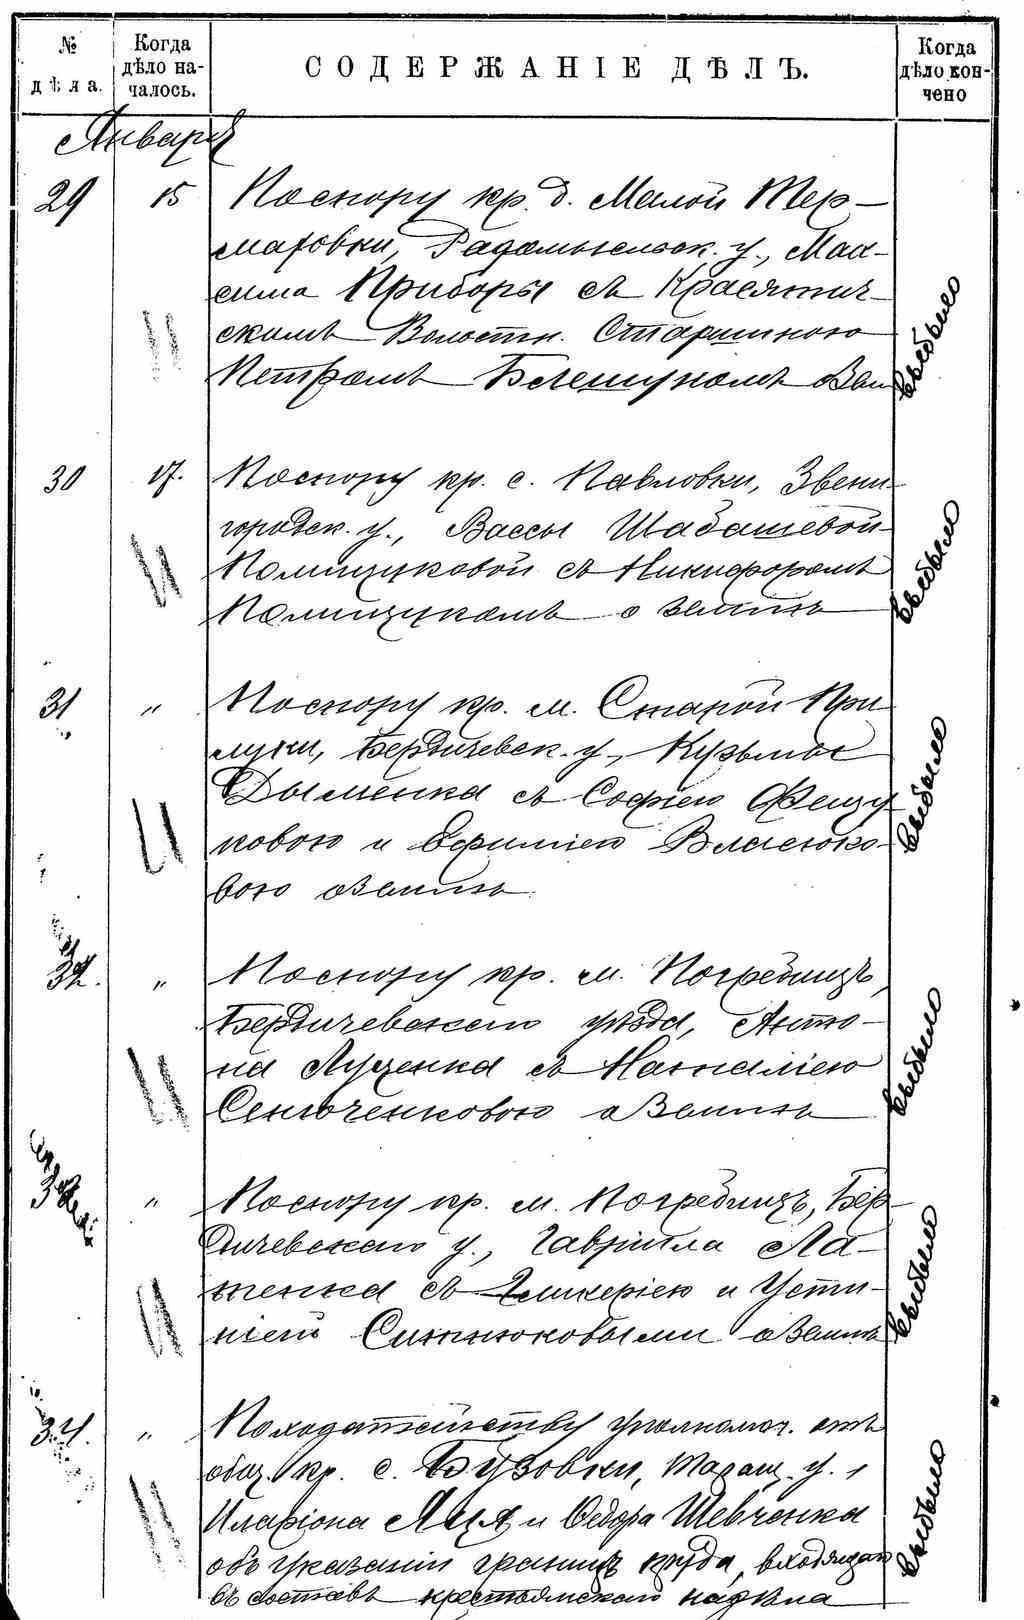 № дѣла.
Когда дѣло на-чалось.
СОДЕРЖАНІЕ ДѢЛЪ.
Когда дѣло кон-чено
Января
29 15 По спору кр. д. Малой
Радомысльск. у., Мак-
сима Приборы съ
скимъ Волостн. Старшиною
Петромъ о зем
выбыло
30 17. По спору кр. с. Павловки, Звени-
городск. у., Вассы Шабашевой
Полищуковой съ Никифоромъ
Полищукомъ о землѣ
выбыло
31 " По спору кр. м. Старой При
луки, Бердичевск. у., Кузьмы
Дыменка съ Софіею
ковою и Евфиміею Власюко-
вою о землѣ
выбыло
32. " По спору кр. м. Погребищъ,
Бердичевскаго уѣзда, Анто-
на Луценка съ Наталіею
Сенюченковою о землѣ
выбыло
33 " По спору кр. м. Погребищъ, Бер-
дичевскаго у., Гавріила Ла-
женка съ Гликеріею и Усти-
ніей о землѣ
выбыло
34. " По ходатайству уполномоч. отъ
общ. кр. с. Бузовки, Таращ. у.,
Иларіона Яця и Ѳедора Шевченка
объ указаніи границъ пруда, входящаго
въ составъ крестьянскаго надѣла
выбыло